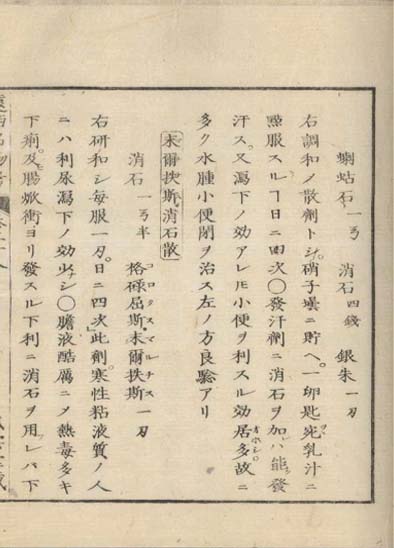 蝲蛄石 一弓 消石 四錢 銀朱 一刃
右調和メ散劑トシ。硝子壜ニ貯ヘ。一卵匙宛乳汁ニ
點服スルヿ日ニ四次〇發汗劑ニ消石ヲ加ハ能發
汗ス。又瀉下ノ効アレ𪜈小便ヲ利スル効居多オホシ。故ニ
多ク水腫小便閉ヲ治ス左ノ方良驗アリ
末爾挾斯消石散
消石 一弓半 格碌屈斯コロクュス末爾挾斯マルチス 一刃
右研和シ每服一刃。日ニ四次」此劑。寒性粘液質ノ人
ニハ利尿瀉下ノ効少シ〇膽液酷厲ニメ熱毒多キ
下痢。及ビ腸焮衝ヨリ發スル下利ニ消石ヲ用レバ下